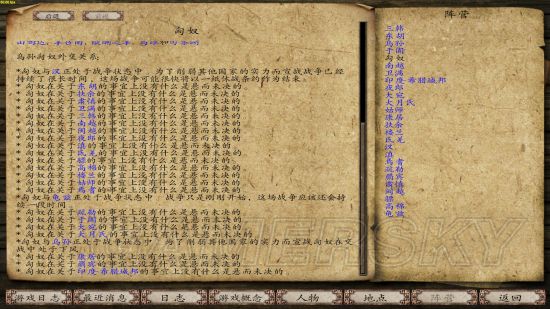 后退
前进
匈奴
乌孙匈奴外交关系:
*匈奴与汉正处于战争状态中，为了削弱其他国家的实力而宣战战争已经
持续了很长时间，这场战争可能很快将以一纸休战条约作为结束。
*匈奴在关于东胡的事宜上没有什么是悬而未决的.
*匈奴在关于扶余的事宜上没有什么是悬而未决的.
*匈奴在关于肃慎的事宜上没有什么是悬而未决的.
*匈奴在关于卫满的事宜上没有什么是悬而未决的.
*匈奴在关于三韩的事宜上没有什么是悬而未决的.
*匈奴在关于南越的事宜上没有什么是悬而未决的.
*匈奴在关于闽越的事宜上没有什么是悬而未决的.
*匈奴在关于夜郎的事宜上没有什么是悬而未决的.
*匈奴在关于滇的事宜上没有什么是悬而未决的.
*匈奴在关于氐羌的事宜上没有什么是悬而未决的.
*匈奴在关于骠的事宜上没有什么是悬而未决的.
*匈奴在关于高棉的事宜上没有什么是悬而未决的.
*匈奴在关于楼兰的事宜上没有什么是悬而未决的.
*匈奴在关于姑师的事宜上没有什么是悬而未决的.
*匈奴在关于焉耆的事宜上没有什么是悬而未决的.
*匈奴与龟兹正处于战争状态中，战争只是刚刚开始，这场战争应该还会持
续一段时间.
*匈奴在关于疏勒的事宜上没有什么是悬而未决的.
*匈奴在关于于阗的事宜上没有什么是悬而未决的.
*匈奴在关于大宛的事宜上没有什么是悬而未决的.
*匈奴在关于大月氏的事宜上没有什么是悬而未决的.
*匈奴与乌孙正处于战争状态中，为了削弱其他国家的实力而宣战匈奴在交
战中处于下风.
*匈奴在关于康居的事宜上没有什么是悬而未决的.
*匈奴在关于罽宾的事宜上没有什么是悬而未决的.
*匈奴在关于印度希腊城邦的事宜上没有什么是悬而未决的.
阵营
三韩
东胡
乌孙
于阗
匈奴
南越
卫满
印度希腊城邦
夜郎
大宛
大月氏
姑师
康居
扶余
楼兰
氐羌
汉
滇
焉耆
疏勒
罽宾
肃慎
闽越
骠
高棉
龟兹
游戏日志
最近消息
日志
游戏概念
人物
地点
阵营
返回